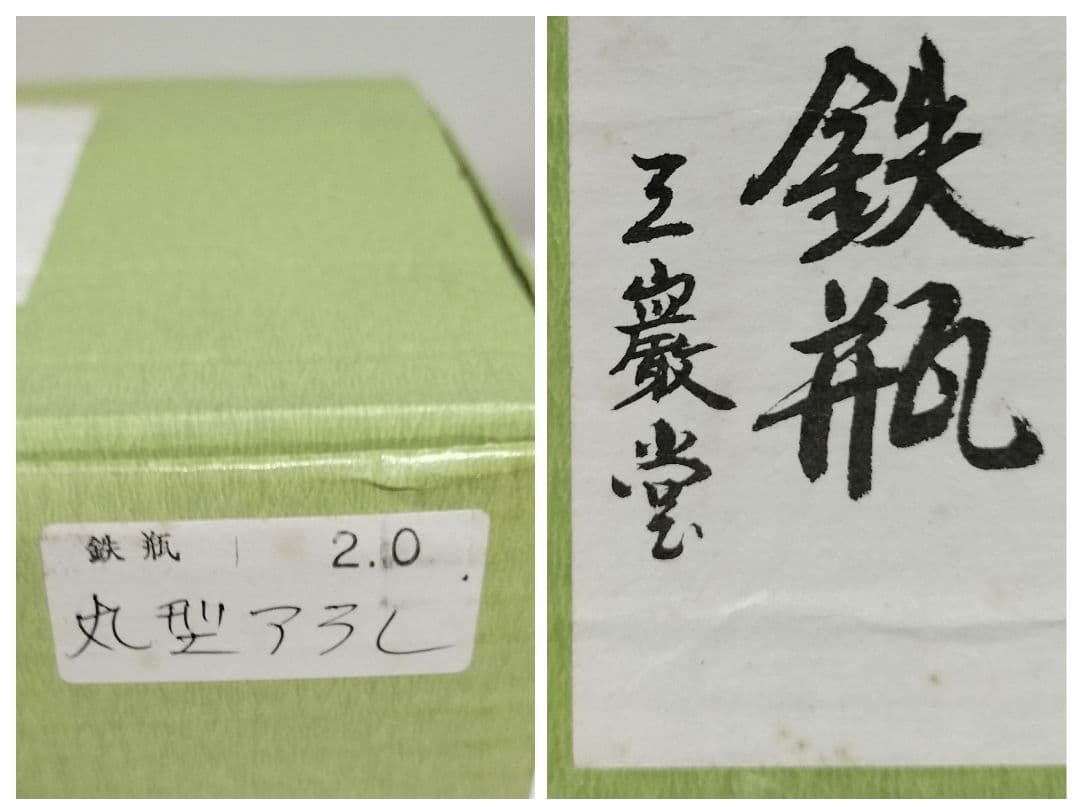 鉄瓶 2.0
丸型アラレ
鉄瓶
三巌堂